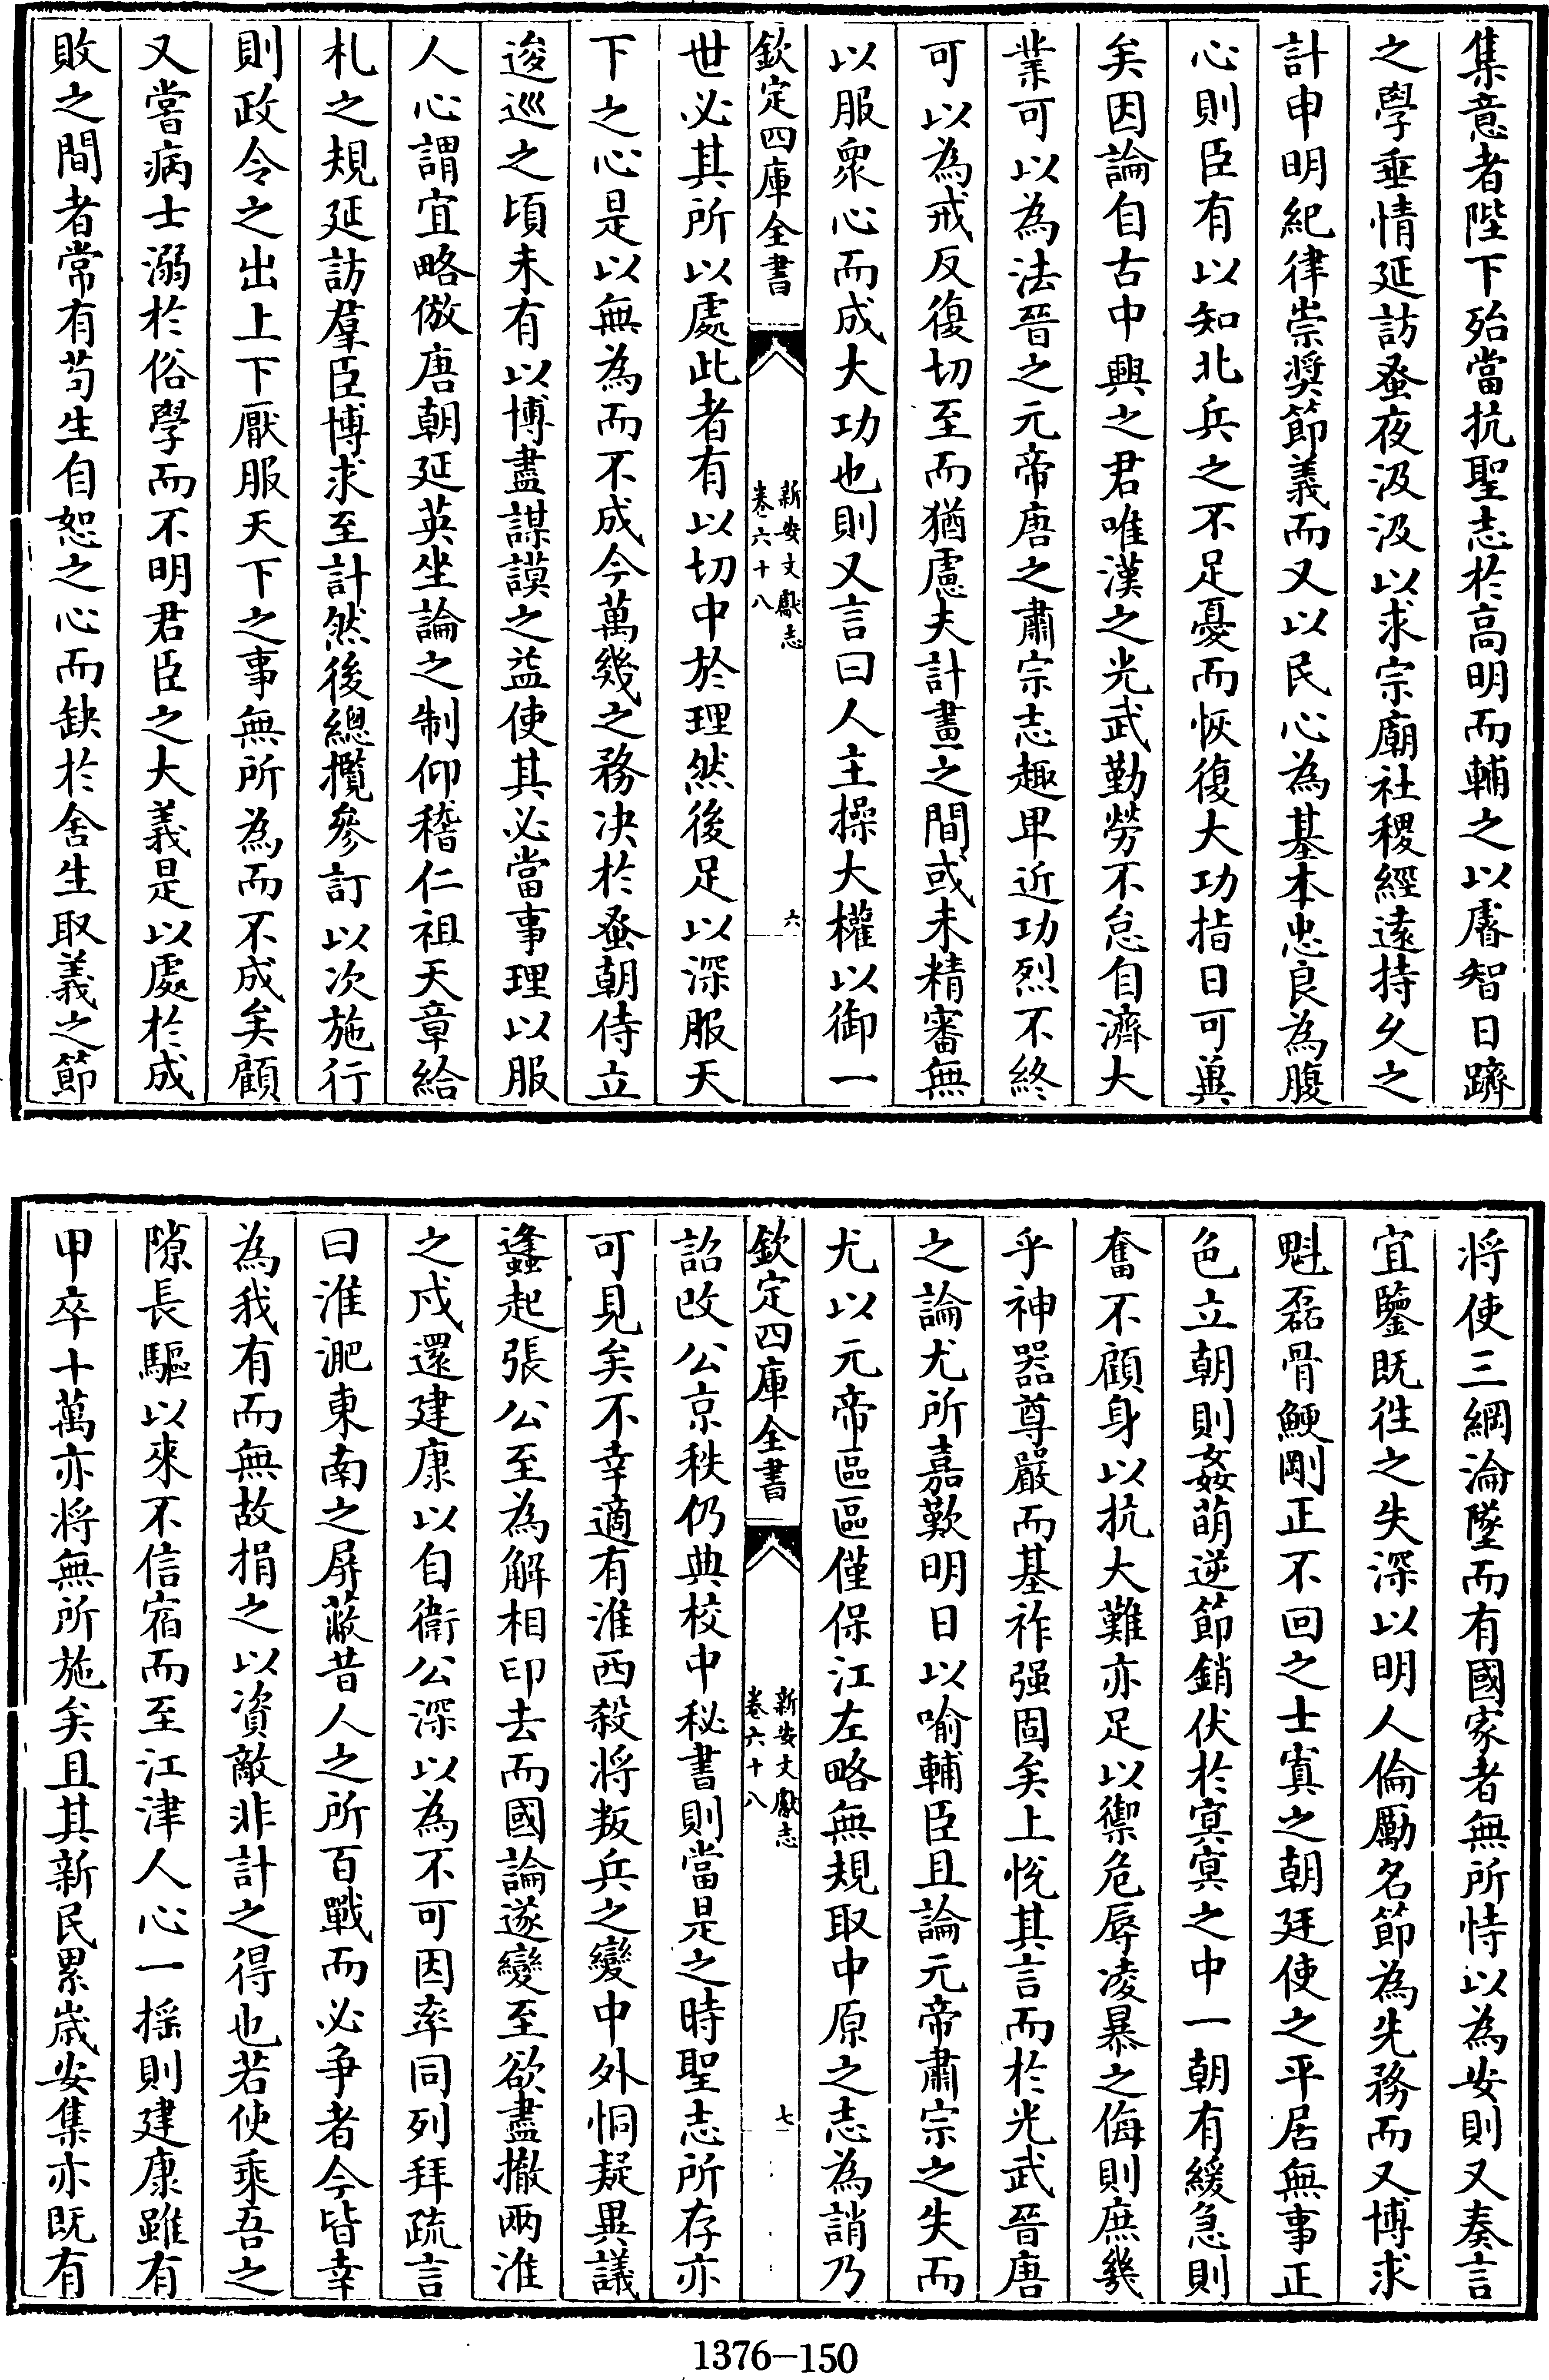 集意者陛下殆當抗聖志於高明而輔之以睿智日躋
之學垂情延訪蚤夜汲汲以求宗廟社稷經遠持久之
計申明紀律崇奬節義而又以民心為基本忠良為腹
心則臣有以知北兵之不足憂而恢復大功指日可冀
矣因論自古中興之君唯漢之光武勤勞不怠自濟大
業可以為法晉之元帝唐之肅宗志趣卑近功烈不終
可以為戒反復切至而猶慮夫計畫之間或未精審無
以服衆心而成大功也則又言曰人主操大權以御一
欽定四庫全書
新安文獻志
卷六十八
六
世必其所以處此者有以切中於理然後足以深服天
下之心是以無為而不成今萬幾之務决於蚤朝侍立
逡巡之頃未有以博盡謀謨之益使其必當事理以服
人心謂宜略倣唐朝延英坐論之制仰稽仁祖天章給
札之規延訪羣臣博求至計然後總攬參訂以次施行
則政令之出上下厭服天下之事無所為而不成矣顧
又嘗病士溺於俗學而不明君臣之大義是以處於成
敗之間者常有茍生自恕之心而缺於舍生取義之節
将使三綱淪墜而有國家者無所恃以為安則又奏言
宜鑒既徃之失深以明人倫勵名節為先務而又博求
魁磊骨鯁剛正不回之士寘之朝廷使之平居無事正
色立朝則姦萌逆節銷伏於㝠㝠之中一朝有緩急則
奮不顧身以抗大難亦足以禦危辱凌暴之侮則庶幾
乎神器尊嚴而基祚强固矣上悦其言而於光武晉唐
之論尤所嘉歎明日以喻輔臣且論元帝肅宗之失而
尤以元帝區區僅保江左略無規取中原之志為誚乃
欽定四庫全書
新安文獻志
卷六十八
七
詔改公京秩仍典校中秘書則當是之時聖志所存亦
可見矣不幸適有淮西殺将叛兵之變中外恫疑異議
逢起張公至為解相印去而國論遂變至欲盡撤兩淮
之戍還建康以自衛公深以為不可因率同列拜疏言
曰淮淝東南之屏蔽昔人之所百戰而必争者今皆幸
為我有而無故捐之以資敵非計之得也若使乘吾之
隙長驅以來不信宿而至江津人心一揺則建康雖有
甲卒十萬亦将無所施矣且其新民累嵗安集亦既有
1376-150